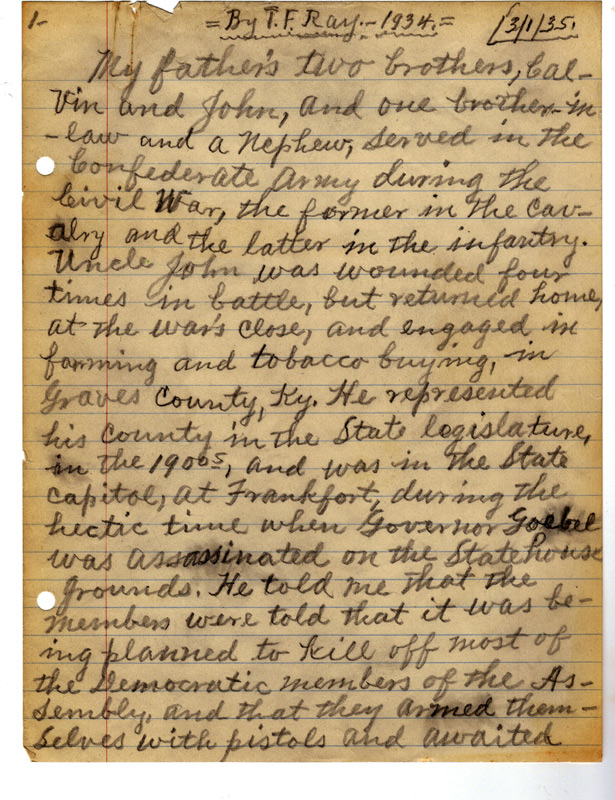 1-
=By T.F. Ray.-1934.=
[3/1/35.
My father's two brothers, Cal-
vin and John, and one brother-in
-law and a Nephew, served in the
Confederate Army during the
Civil War, the former in the cav-
alry and the latter in the infantry.
Uncle John was wounded four
times in battle, but returned home,
at the war's close, and engaged in
farming and tobacco buying, in
Graves County, Ky. He represented
his county in the State legislature,
in the 1900s, and was in the State
capitol, at Frankfort, during the
hectic time when Governor Goebel
was assassinated on the Statehouse
grounds. He told me that the
members were told that it was be-
ing planned to kill off most of
the Democratic members of the As-
sembly, and that they armed them-
selves with pistols and awaited